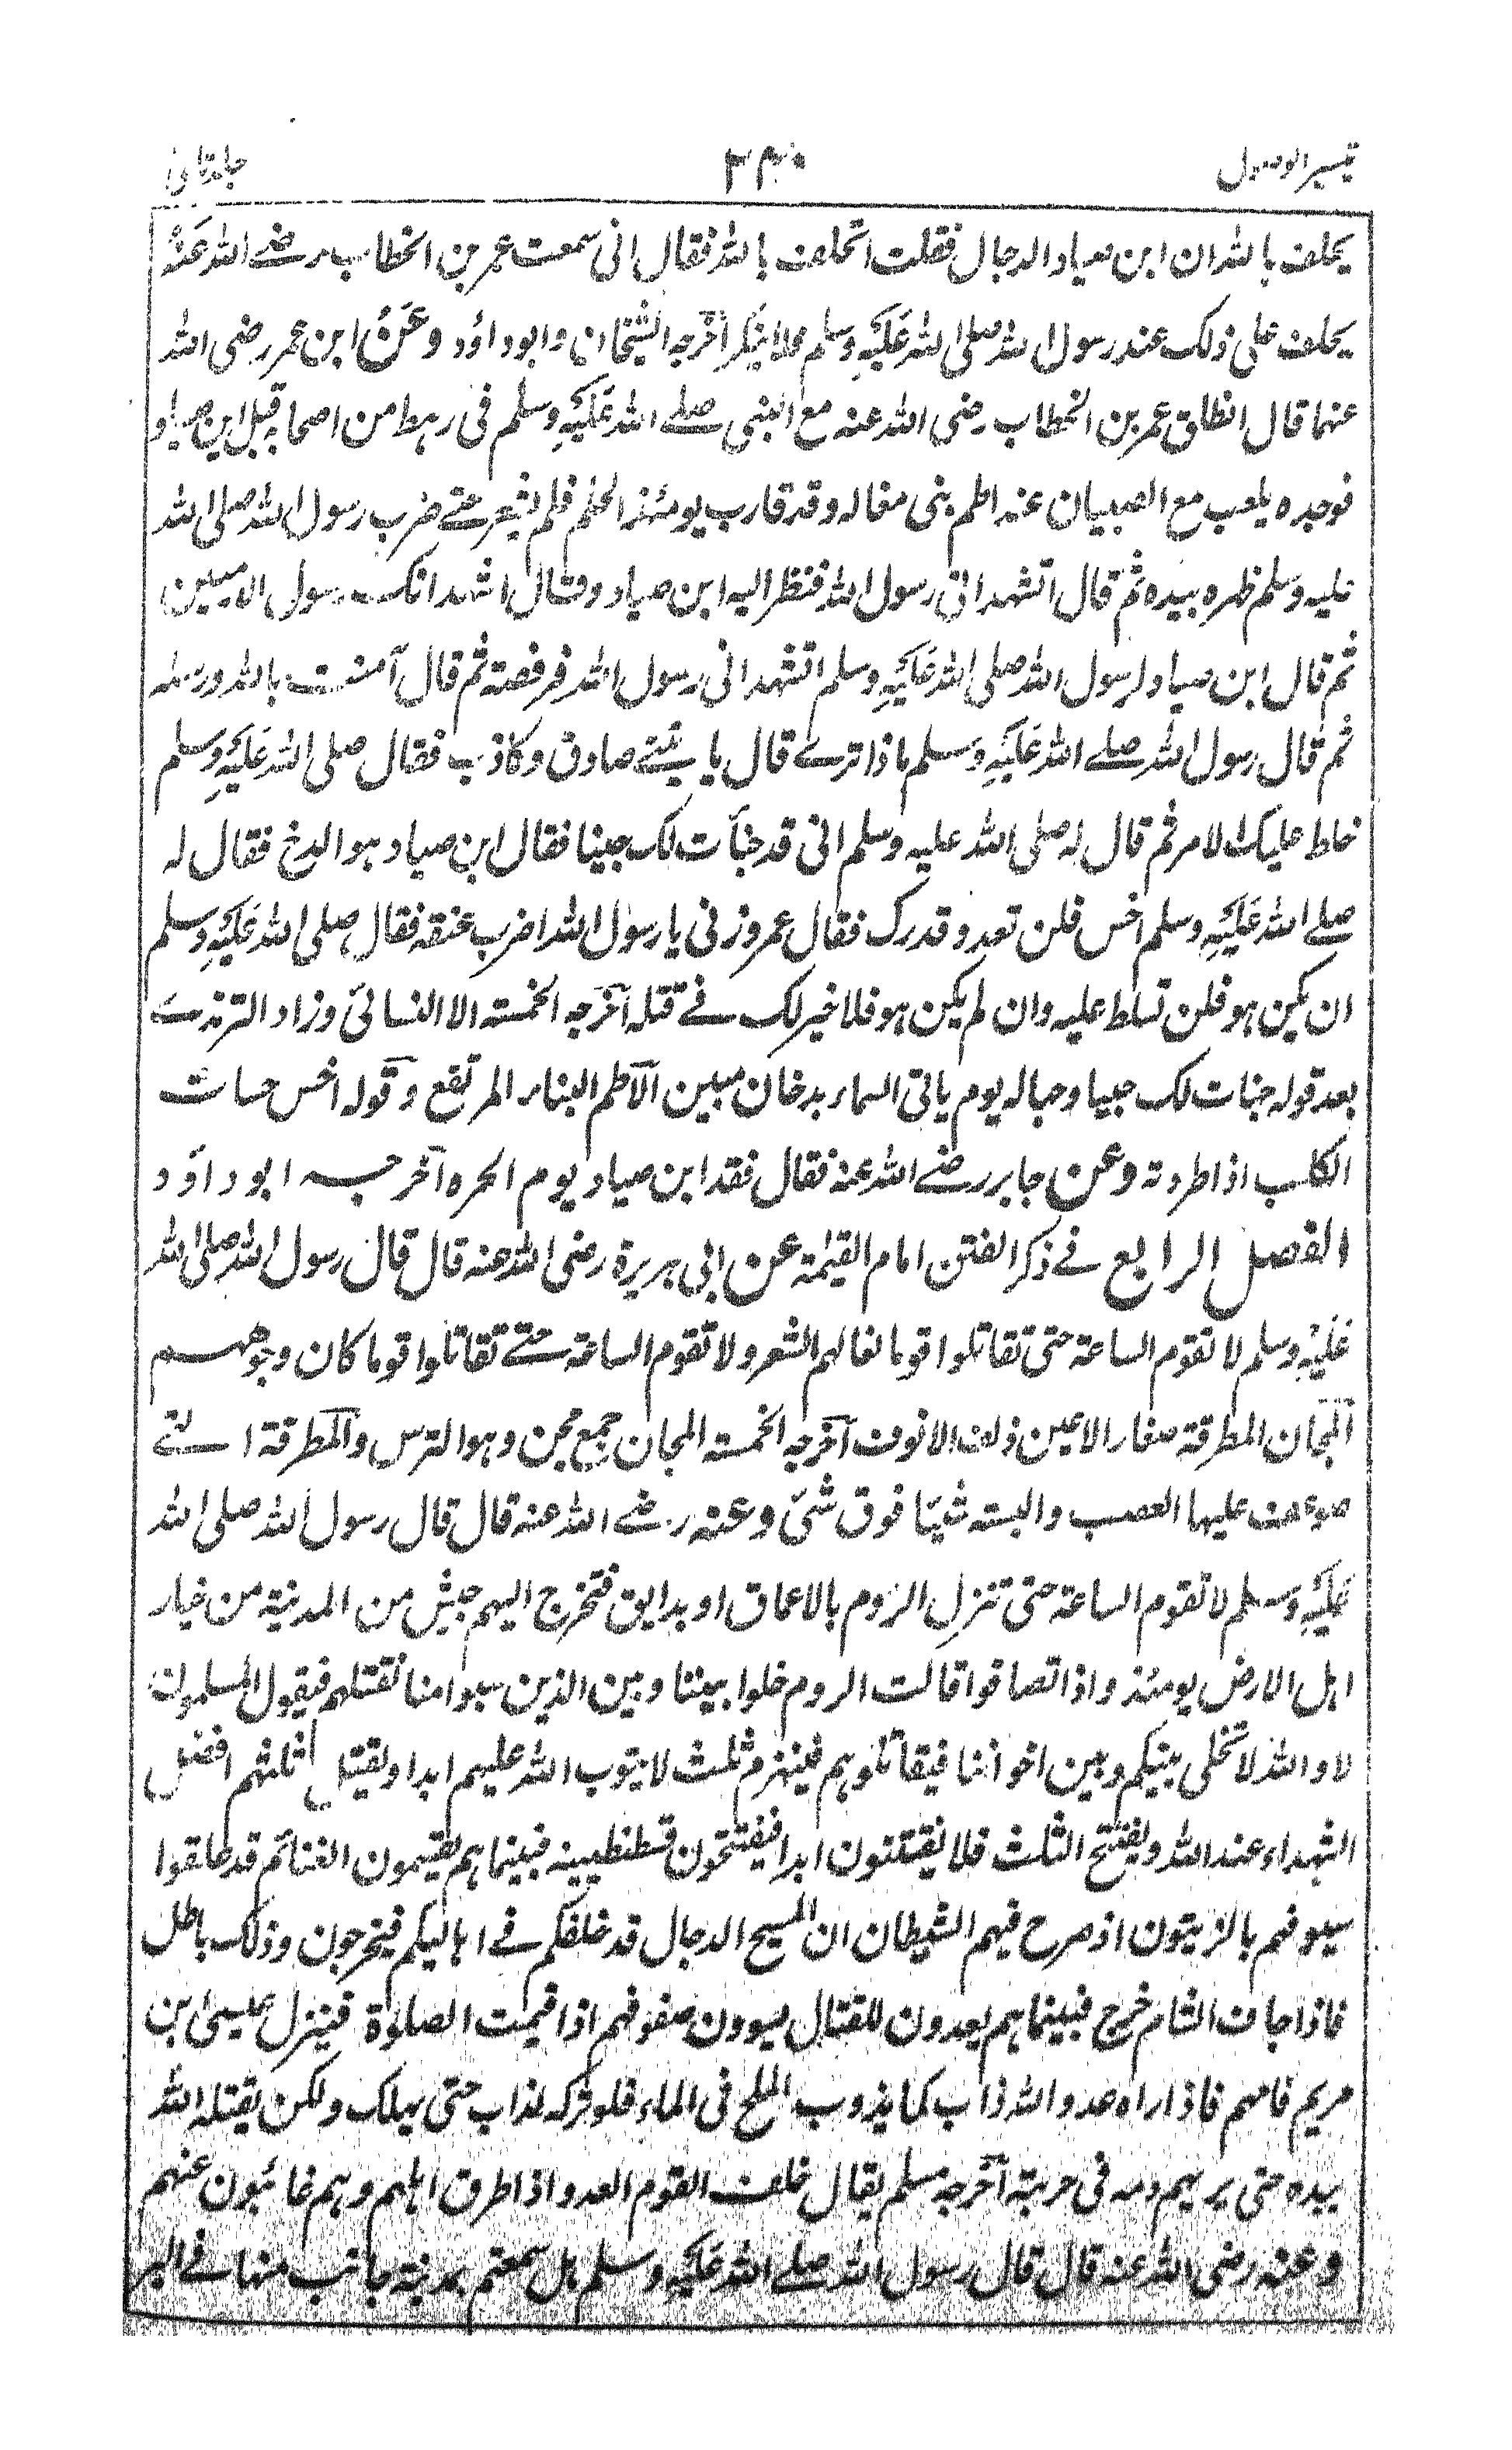 تيسير الوصول ٣٤٠ جلد ثانی
يحلف بالله ان ابن صياد الدجال فقلت اتحلف بالله فقال انی سمعت عمر بن الخطاب رضے الله عَنْهُ
يحلف علی ذلک عند رسول الله صلی الله عَلَيْهِ وسلم فلا ينكر أخرجه الشيخان وابوداؤد وعَنْ ابن عمر رضی الله
عنهما قال انطلق عمر بن الخطاب رضی الله عنه مع النبی صلے الله عَلَيْهِ وسلم فی رهط من اصحابه قبل ابن صياد
فوجده يلعب مع الصبيان عند اطم بنی مغاله وقد قارب يومئذ الحلم فلم يشعر حتے ضرب رسول الله صلی الله
عليه وسلم ظهره بيده ثم قال اتشهد انی رسول الله فنظر اليه ابن صياد وقال اشهد انک رسول الاميين
ثم قال ابن صياد لرسول الله صلی الله عَلَيْهِ وسلم اتشهد انی رسول الله فرفصته ثم قال آمنت بالله ورسله
ثم قال رسول الله صلے الله عَلَيْهِ وسلم ماذا ترے قال ياتينے صادق وكاذب فقال صلی الله عَلَيْهِ وسلم
خلط عليک الامر ثم قال له صلی الله عليه وسلم انی قد خبأت لک خبيئا فقال ابن صياد هو الدخ فقال له
صلے الله عَلَيْهِ وسلم اخس فلن تعدو قدرک فقال عمر وزنی يا رسول الله اضرب عنقه فقال صلی الله عَلَيْهِ وسلم
ان يكن هو فلن تسلط عليه وان لم يكن هو فلا خير لک فے قتله آخرجه الخمسته الا النسائی وزاد الترمذے
بعد قوله خبات لک خبيا وخباله يوم ياتی السماء بدخان مبين آلاطم البناء المرتفع وقوله اخس خسات
الكلب اذا طردته وعن جابر رضے الله عنه فقال فقد ابن صياد يوم الحره آخرجه ابوداؤد
الفصل الرابع فے ذكر الفتن امام القيٰمة عن ابی هريرة رضی الله عنه قال قال رسول الله صلی الله
عَلَيْهِ وسلم لا تقوم الساعة حتی تقاتلوا قوما نعالهم الشعر ولا تقوم الساعة حتے تقاتلوا قوما كان وجوههم
آلمجان المطرقة صغار الاعين ذلف الانوف آخرجه الخمسته المجان جمع مجن وهو الترس والمطرقة التے
ضوعف عليها العصب والبسته شيئا فوق شیٔ وعنه رضے الله عنه قال قال رسول الله صلی الله
عَلَيْهِ وسلم لا تقوم الساعة حتی تنزل الروم بالاعماق او بدابق فتخرج اليهم جيش من المدينة من خيار
اهل الارض يومئذ واذا تصافوا قالت الروم خلوا بيننا وبين الذين سبوا منا نقتلهم فيقول المسلمون
لا والله لا تخلی بينكم وبين اخواننا فيقاتلوهم فينهزم ثلث لا يتوب الله عليهم ابدا ويقتل اثلثهم افضل
الشهداء عند الله ويفتتح الثلث فلا يفتتنون ابدا فيفتتحون قسطنطينيه فبينماهم يقتسمون الغنائم قد علقوا
سيوفهم بالزيتون اذ صرح فيهم الشيطان ان المسيح الدجال قد خلفكم فے اهاليكم فيخرجون وذلک باطل
فاذا جاؤ الشام خرج فبينماهم يعدون للقتال يسوون صفوفهم اذا قيمت الصلوة فينزل عيسیٰ ابن
مريم فامهم فاذا راه عدو الله ذاب كما يذوب الملح فی الماء فلو تركه لذاب حتی يهلک ولكن يقتله الله
بيده حتی يريهم دمه فی حربته آخرجه مسلم يقال خلف القوم العدو اذا طرق اهلهم وهم غائبون عنهم
وعنه رضی الله عنه قال قال رسول الله صلے الله عَلَيْهِ وسلم هل سمعتم بمدينة جانب منها فے البر